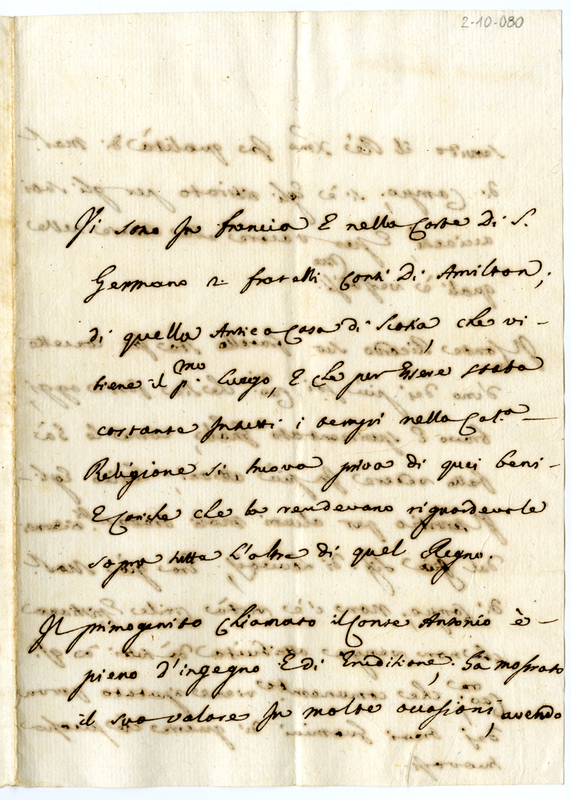 2-10-080
Vi sono In francia E nella Corte Di S.
Germano 2 fratelli Conti Di Amilton;
di quella Antica Casa di Scotia, che vi-
tiene il p.mo luogo, E che per Essere stata
costante Intutti i tempi nella Cat.a
Religione si truova priva di quei beni-
E Cariche che la rendevano riguardevole
sopra tutte l'altre di quel Regno.
Il primogenito chiamato il Conte Antonio è-
pieno d'ingegno E di Eruditione, ha mostrato
il suo valore In molte occasioni, avendo